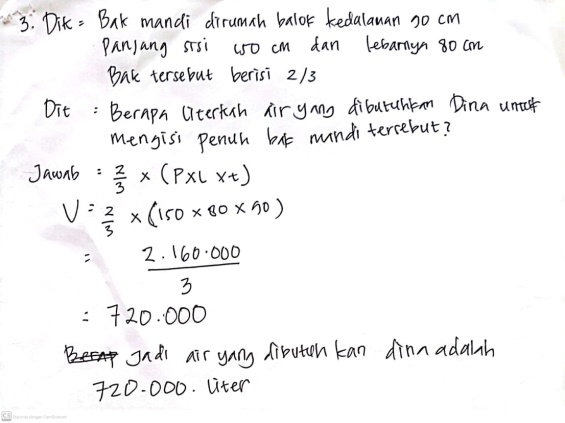 3. Dik = Bak mandi dirumah balok kedalaman 90 cm
Panjang sisi 150 cm dan lebarnya 80 cm
Bak tersebut berisi 2/3
Dit : Berapa literkah air yang dibutuhkan Dina untuk
mengisi penuh bak mandi tersebut?
Jawab : 2/3 x (PxL xt)
V = 2/3 x (150 x 80 x 90)
= 2.160.000
3
= 720.000
Berap Jadi air yang dibutuh kan dina adalah
720.000. liter